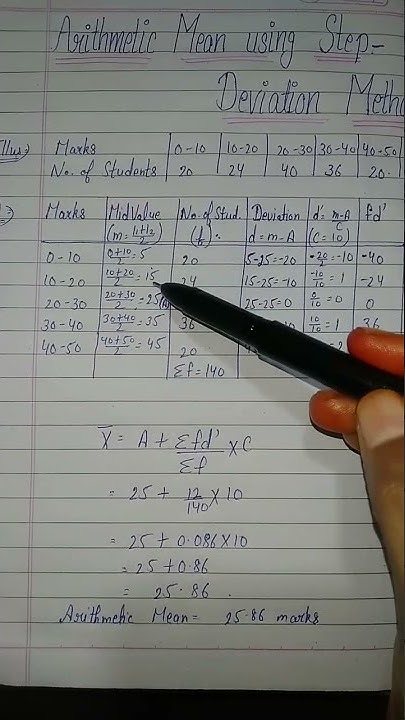 Arithmetic Mean using Step-
Deviation Metho
Illus:
Marks 0-10 10-20 20-30 30-40 40-50
No. of Students 20 24 40 36 20
Marks Mid Value No. of Stud. Deviation d' = m-A fd'
(m = l1+l2/2) (f). d = m-A C (C = 10)
0-10 0+10/2 = 5 20 5-25=-20 -20/10 = -10 -40
10-20 10+20/2 = 15 24 15-25=-10 -10/10 = 1 -24
20-30 20+30/2 = 25 25-25=0 0/10 = 0 0
30-40 30+40/2 = 35 36 10/10 = 1 36
40-50 40+50/2 = 45 20
Σf = 140
X̄ = A + Σfd'/Σf × C
= 25 + 12/140 × 10
= 25 + 0.086 × 10
= 25 + 0.86
= 25.86 .
Arithmetic Mean = 25.86 marks